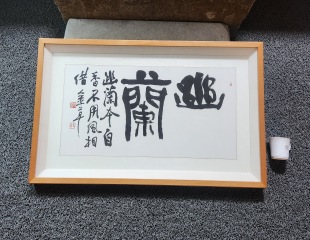 幽蘭
幽蘭本自
香不用風相
借